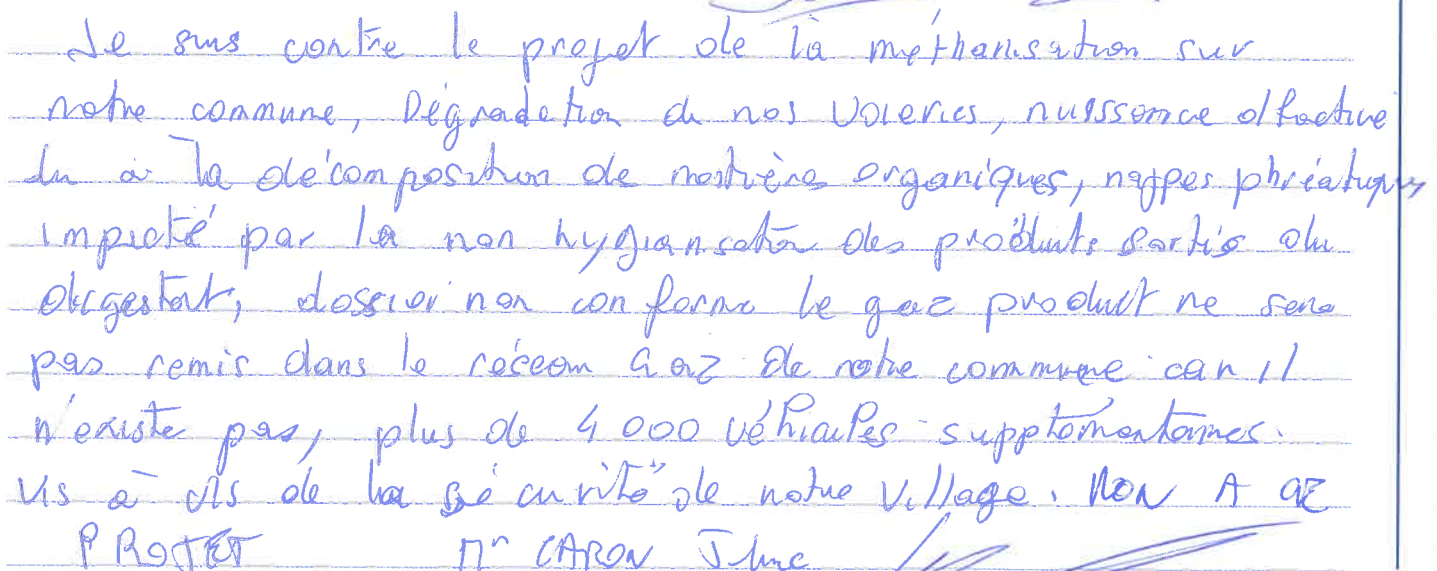 Je suis contre le projet de la méthanisation sur
notre commune, Dégradation de nos voieries, nuissance olfactive
du à la décomposition de matières organiques, nappes phréatiques
impacté par la non hygianisation des produits sortis du
digestat, dossier non conforme le gaz product ne sera
pas remis dans le réseau Gaz de notre commune car il
n'existe pas, plus de 4 000 véhicules supplémentaires.
vis à vis de la sécurité de notre village. NON A CE
PROJET Mr CARON